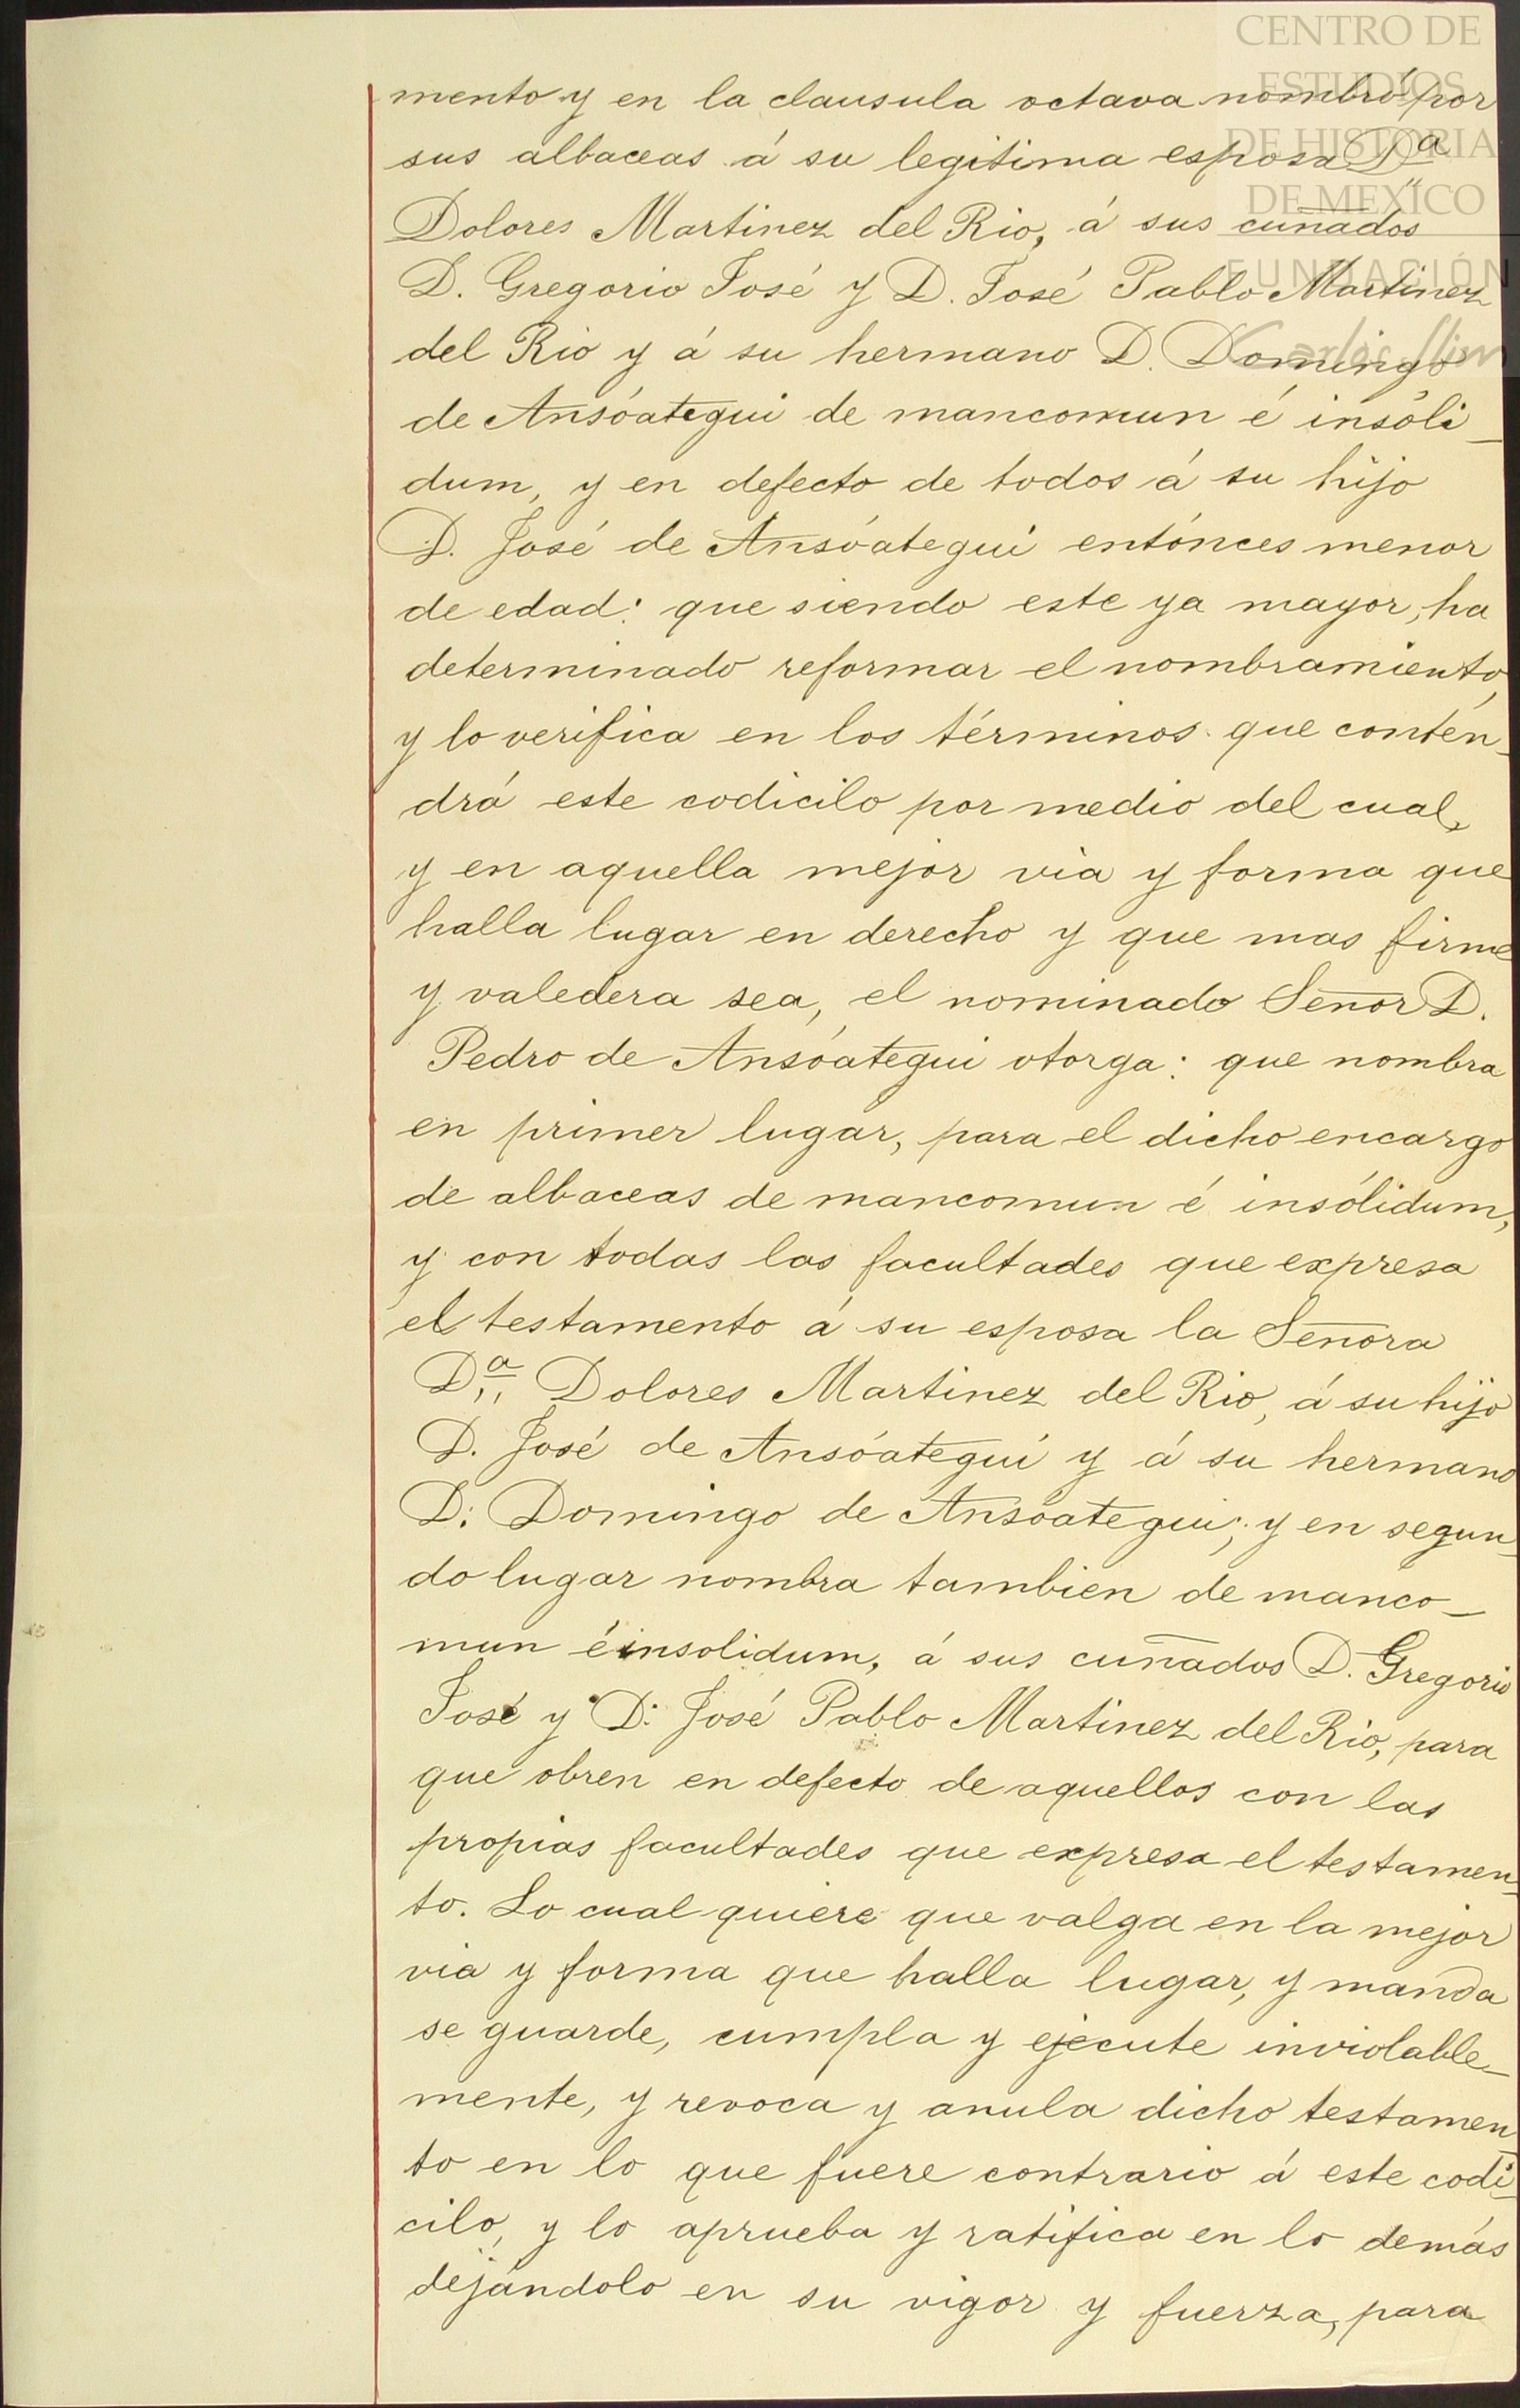 CENTRO DE
ESTUDIOS
DE HISTORIA
DE MEXICO
FUNDACIÓN
Carlos Slim
mento y en la clausula octava nombró por
sus albaceas á su legitima esposa Dª
Dolores Martinez del Rio, á sus cuñados
D. Gregorio José y D. José Pablo Martinez
del Rio y á su hermano D. Domingo
de Ansóategui de mancomun é insóli-
dum, y en defecto de todos á su hijo
D. José de Ansóategui entónces menor
de edad: que siendo este ya mayor, ha
determinado reformar el nombramiento,
y lo verifica en los términos que conten-
drá este codicilo por medio del cual,
y en aquella mejor via y forma que
halla lugar en derecho y que mas firme
y valedera sea, el nominado Señor D.
Pedro de Ansóategui otorga: que nombra
en primer lugar, para el dicho encargo
de albaceas de mancomun é insólidum,
y con todas las facultades que expresa
el testamento á su esposa la Señora
Dª Dolores Martinez del Rio, á su hijo
D. José de Ansóategui y á su hermano
D. Domingo de Ansóategui; y en segun-
do lugar nombra tambien de manco-
mun é insolidum, á sus cuñados D. Gregorio
José y D. José Pablo Martinez del Rio, para
que obren en defecto de aquellos con las
propias facultades que expresa el testamen-
to. Lo cual quiere que valga en la mejor
via y forma que halla lugar, y manda
se guarde, cumpla y ejecute inviolable-
mente, y revoca y anula dicho testamen-
to en lo que fuere contrario á este codi-
cilo, y lo aprueba y ratifica en lo demás
dejándolo en su vigor y fuerza, para